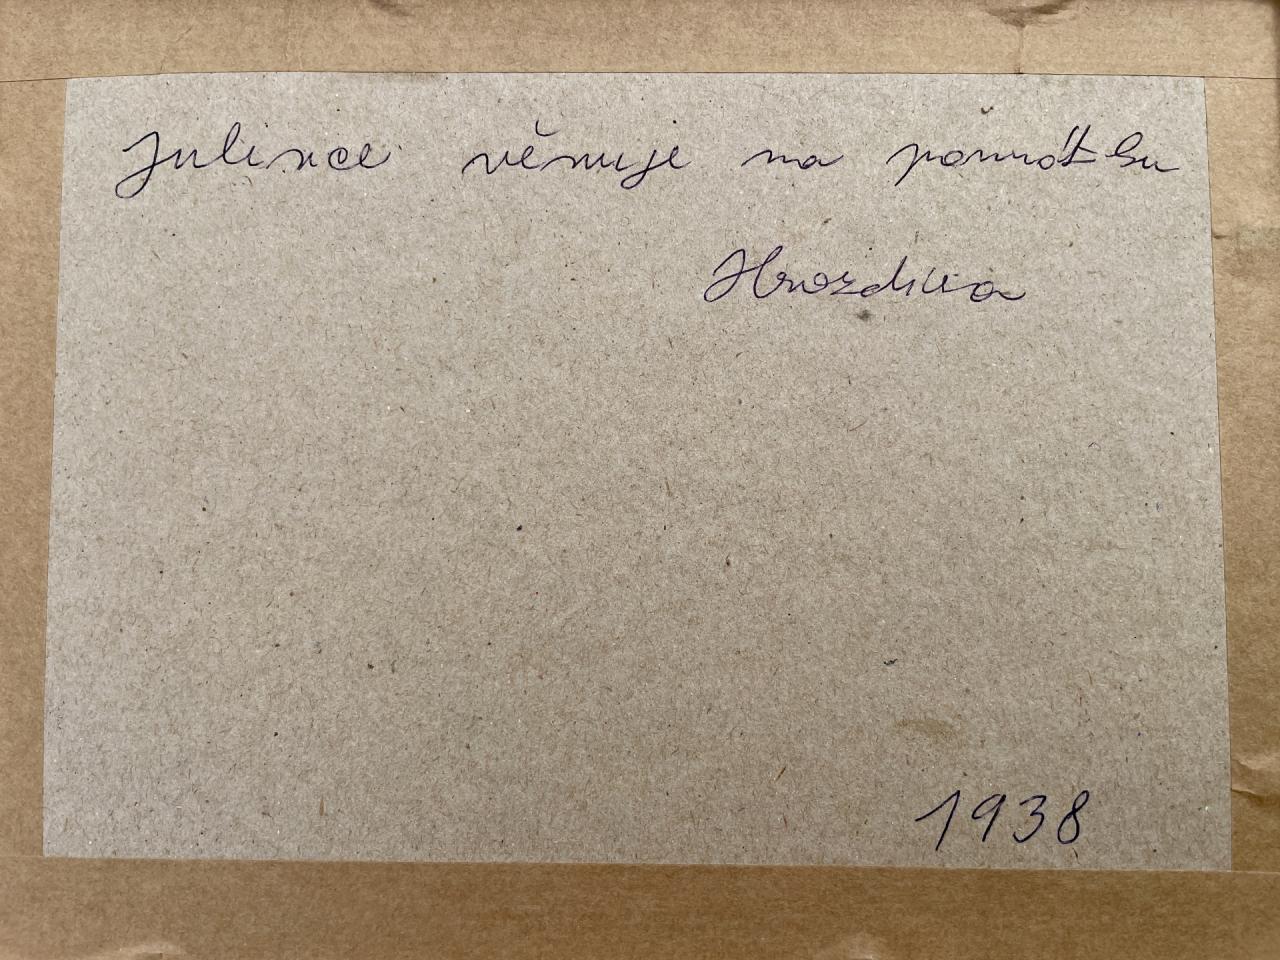 Julince věnuje na památku
1938